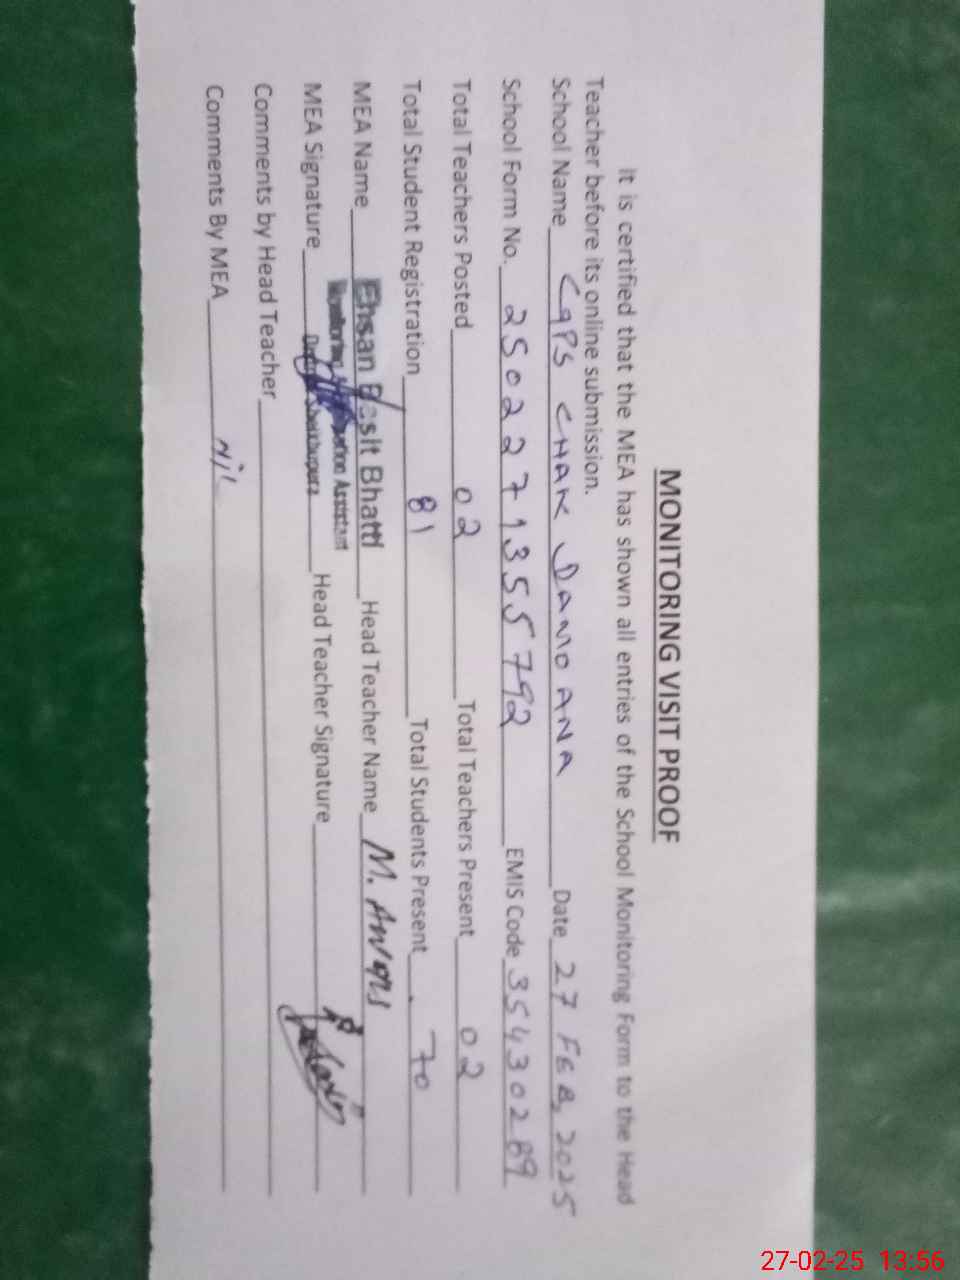 MONITORING VISIT PROOF
It is certified that the MEA has shown all entries of the School Monitoring Form to the Head
Teacher before its online submission.
School Name GPS CHAK DAMOANA Date 27 FEB, 2025
School Form No. 2502271355792 EMIS Code 35430289
Total Teachers Posted 02 Total Teachers Present 02
Total Student Registration 81 Total Students Present 70
MEA Name Ehsan Basit Bhatti Head Teacher Name M. Awais
Monitoring Assistant
MEA Signature Sheikhupura Head Teacher Signature
Comments by Head Teacher
Comments By MEA Nil
27-02-25 13:56